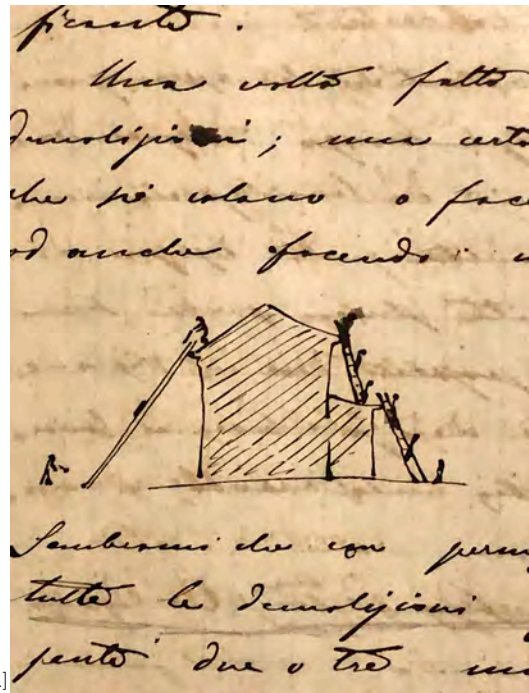 ficante.
Una volta fatto
demolizioni; una certa
che si calano o face
od anche facendo
Sembrami che con perm
tutte le demolizioni
due o tre
]